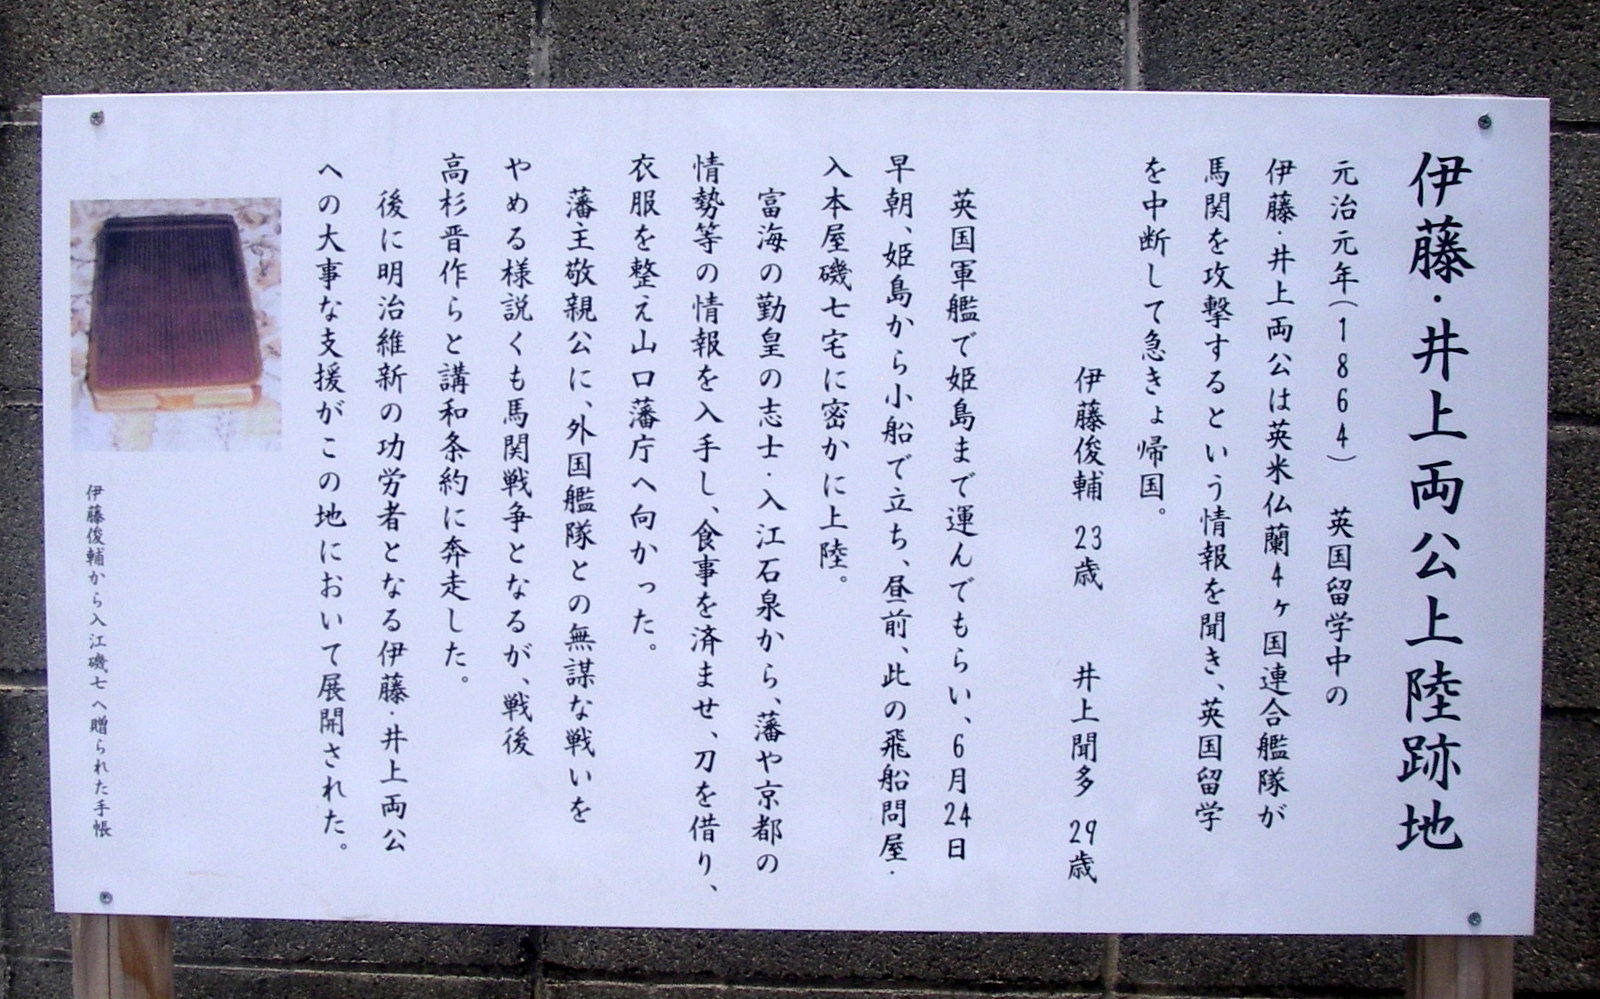 伊藤・井上両公上陸跡地
元治元年(1864) 英国留学中の
伊藤・井上両公は英米仏蘭4ヶ国連合艦隊が
馬関を攻撃するという情報を聞き、英国留学
を中断して急きょ帰国。
伊藤俊輔 23歳 井上聞多 29歳
英国軍艦で姫島まで運んでもらい、6月24日
早朝、姫島から小船で立ち、昼前、此の飛船問屋・
入本屋磯七宅に密かに上陸。
富海の勤皇の志士・入江石泉から、藩や京都の
情勢等の情報を入手し、食事を済ませ、刀を借り、
衣服を整え山口藩庁へ向かった。
藩主敬親公に、外国艦隊との無謀な戦いを
やめる様説くも馬関戦争となるが、戦後
高杉晋作らと講和条約に奔走した。
後に明治維新の功労者となる伊藤・井上両公
への大事な支援がこの地において展開された。
伊藤俊輔から入江磯七へ贈られた手帳